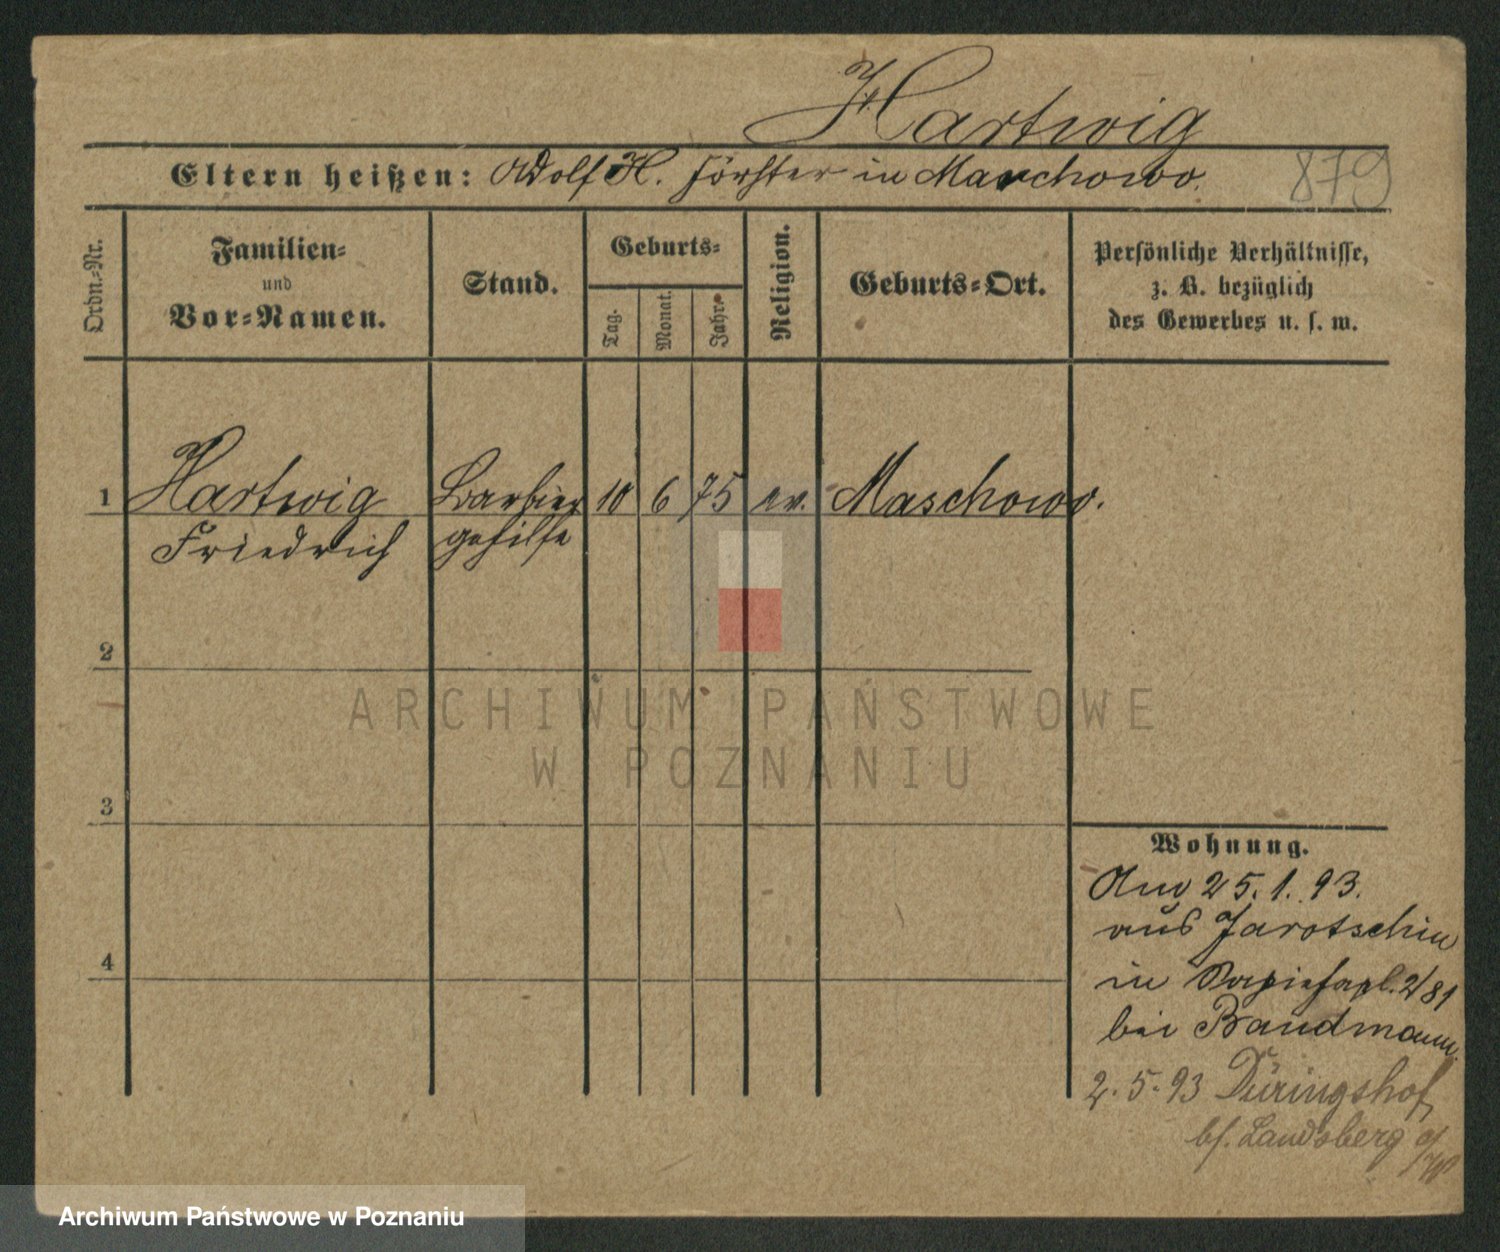 Hartwig
Eltern heißen: Adolf H. Förster in Marchowo.
879
Ordn.-Nr.
Familien-
und
Vor-Namen.
Stand.
Geburts-
Tag.
Monat.
Jahr.
Religion.
Geburts-Ort.
Persönliche Verhältnisse,
z. B. bezüglich
des Gewerbes u. s. w.
1 Hartwig Barbier 10 6 75 ev. Maschowo.
Friedrich gehilfe
2
ARCHIWUM PAŃSTWOWE
W POZNANIU
3
Wohnung.
Am 25.1.93.
aus Jarotschin
in 2/81
bei Bandmann.
4
2.5.93 Düringshof
bf. Landsberg a/W
Archiwum Państwowe w Poznaniu